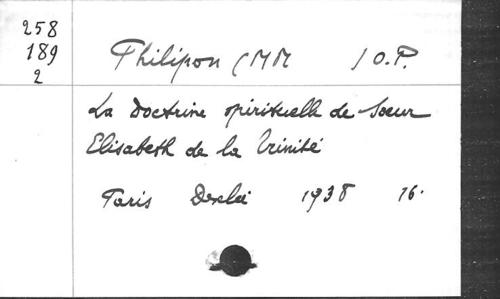 258
189
2
Philipon (MM) O.P.
La Doctrine spirituelle de Soeur
Elisabeth de la Trinité
Paris Desclée 1938 16.